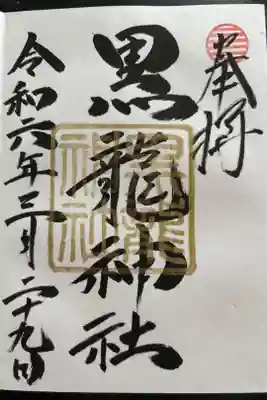 奉拝
黒龍神社
令和六年三月二十九日